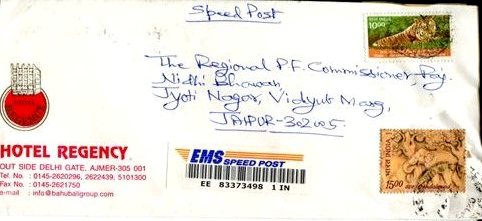 Speed Post
The Regional P.F. Commissioner, Raj.
Nidhi Bhawan,
Jyoti Nagar, Vidyut Marg,
JAIPUR-302005
10.00
HOTEL REGENCY
OUT SIDE DELHI GATE, AJMER-305 001
Tel. No. : 0145-2620296, 2622439, 5101300
Fax No. : 0145-2621750
e-mail : info@bahubaligroup.com
EMS SPEED POST
EE 83373498 1 IN
भारत INDIA
15.00